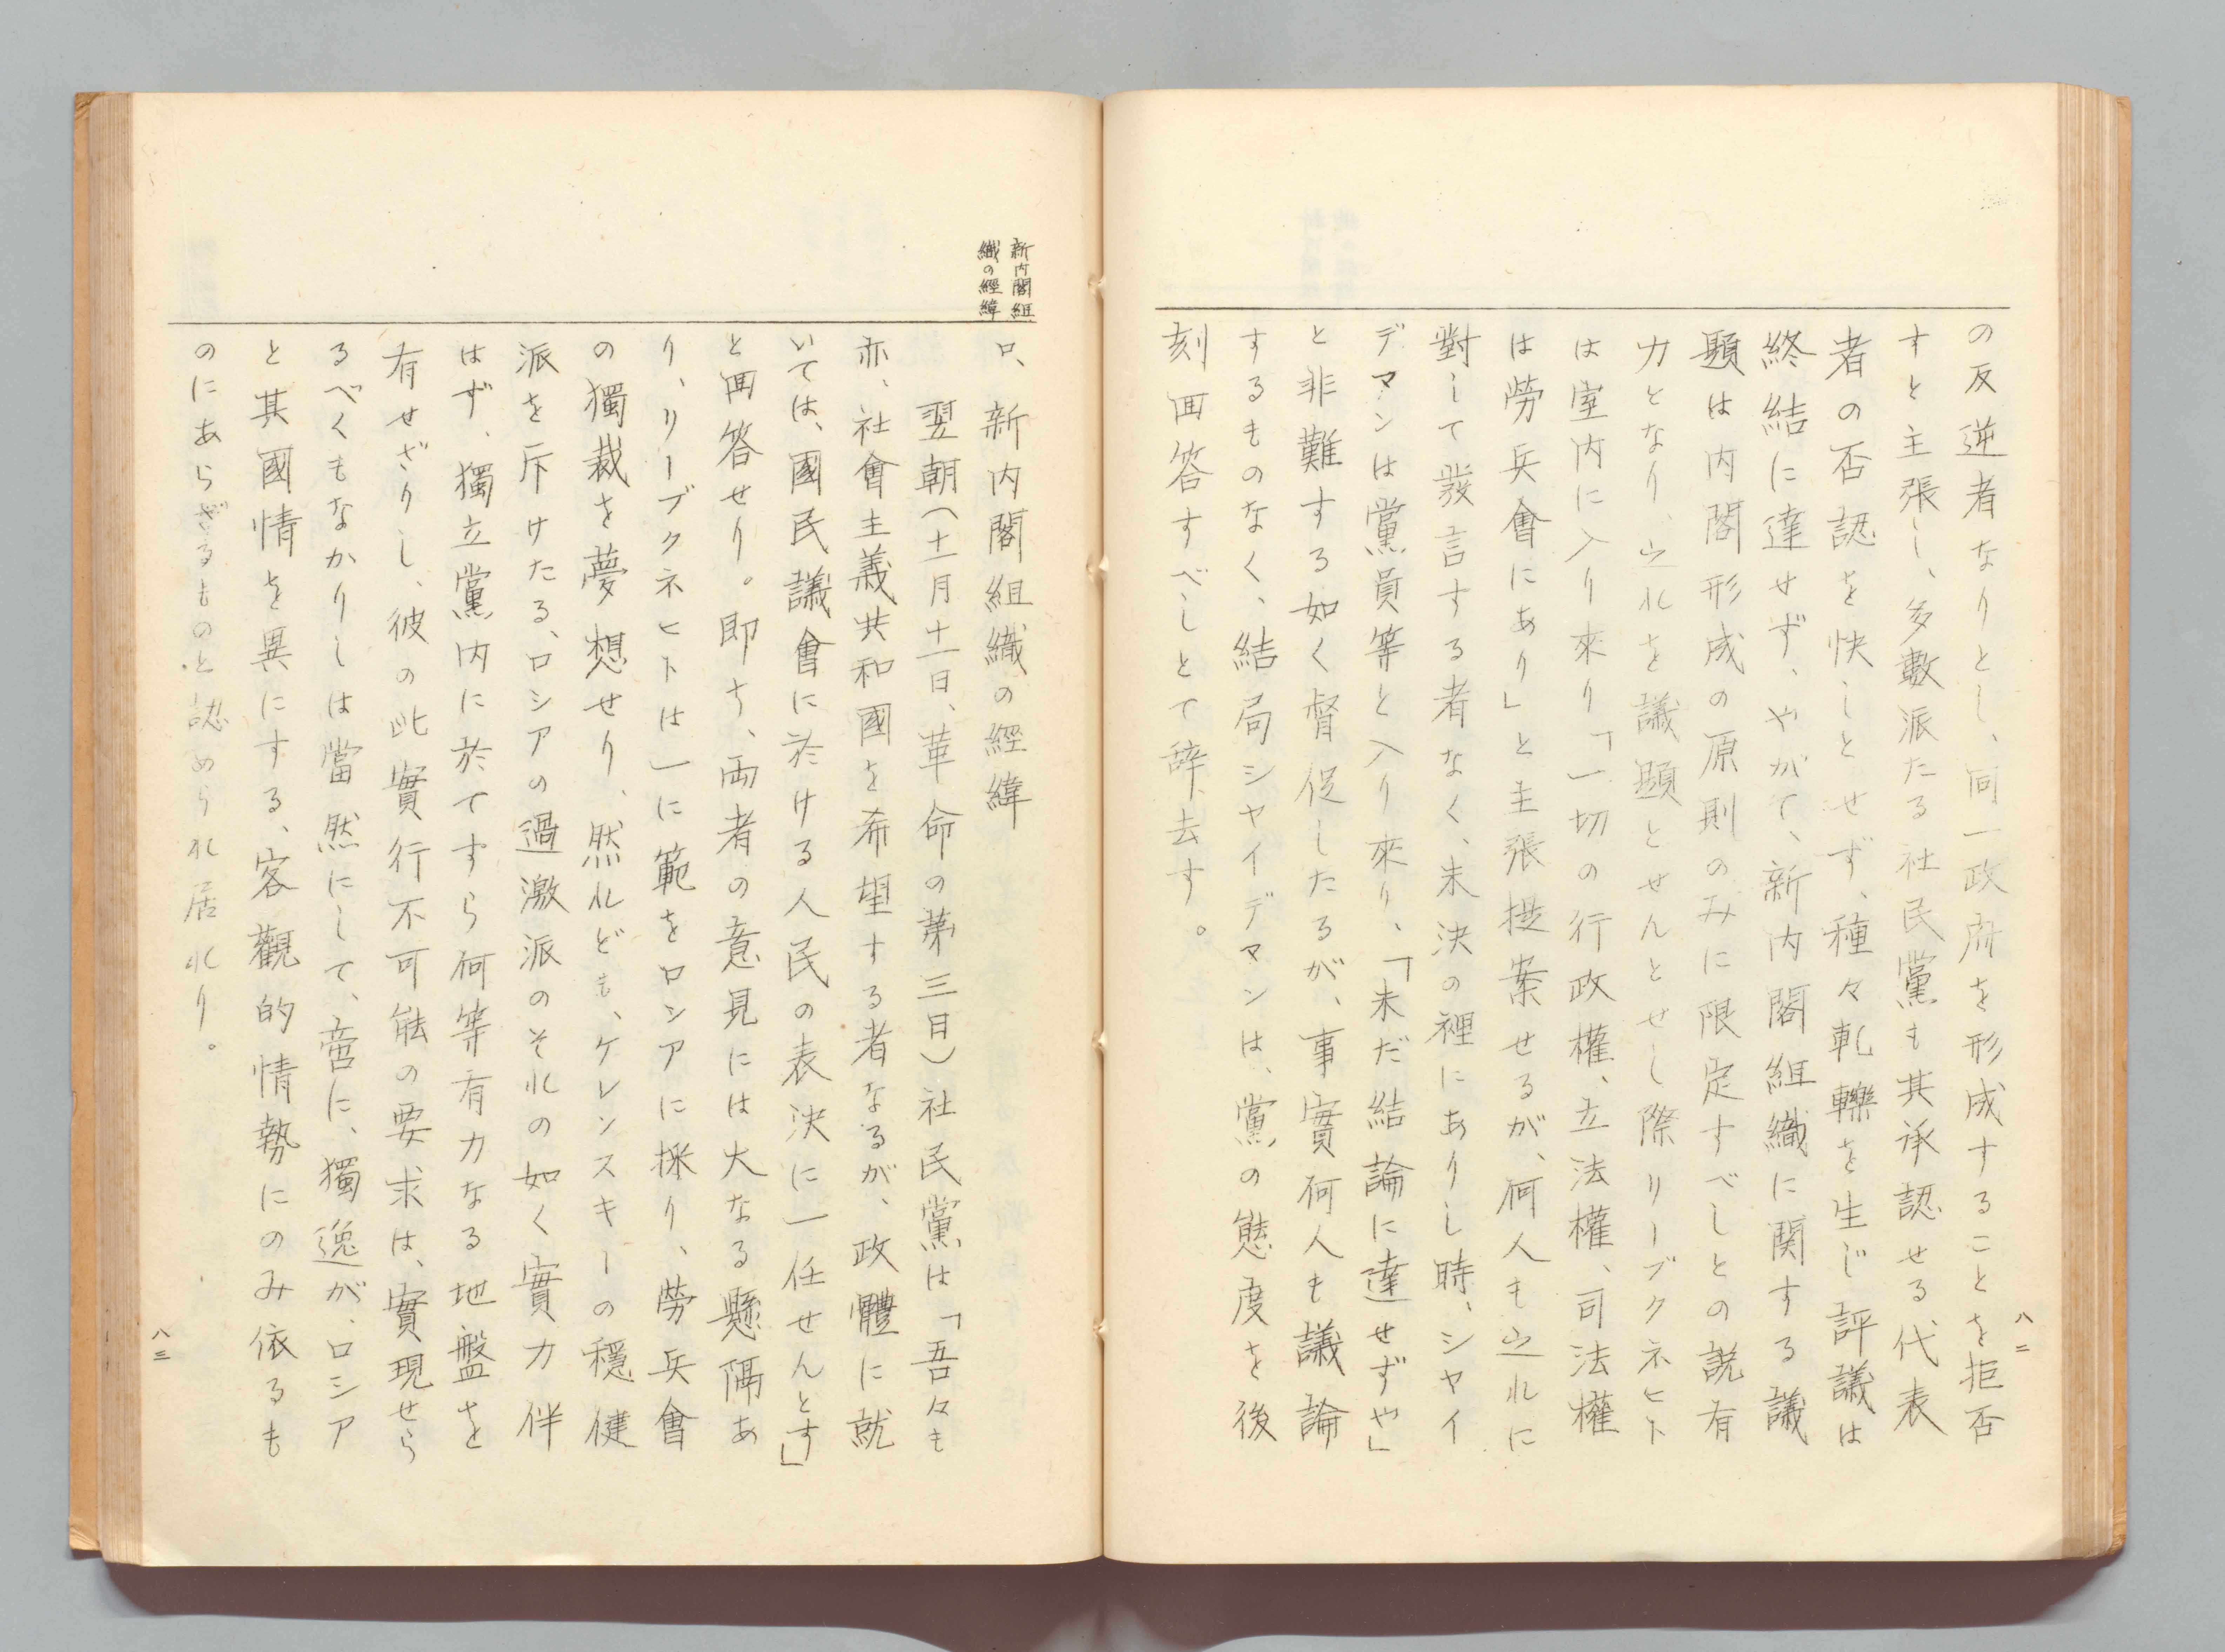 の反逆者なりとし、同一政府を形成することを拒否
すと主張し、多數派たる社民黨も其承認せる代表
者の否認を快しとせず、種々軋轢を生じ評議は
終結に達せず、やがて、新内閣組織に関する議
題は内閣形成の原則のみに限定すべしとの説有
力となり、之れを議題とせんとせし際リーブクネヒト
は室内に入り來り「一切の行政權、立法權、司法權
は勞兵會にあり」と主張提案せるが、何人も之れに
對して發言する者なく、未決の裡にありし時、シヤイ
デマンは黨員等と入り來り、「未だ結論に達せずや」
と非難する如く督促したるが、事實何人も議論
するものなく、結局シヤイデマンは、黨の態度を後
刻回答すべしとて辞去す。
八二
新内閣組
織の經緯
ロ、新内閣組織の經緯
翌朝(十一月十一日、革命の第三日)社民黨は「吾々も
亦、社會主義共和國を希望する者なるが、政體に就
いては、國民議會に於ける人民の表決に一任せんとす」
と回答せり。即ち、両者の意見には大なる懸隔あ
り、リーブクネヒトは一に範をロシアに採り、勞兵會
の獨裁を夢想せり、然れども、ケレンスキーの穩健
派を斥けたる、ロシアの過激派のそれの如く實力伴
はず、獨立黨内に於てすら何等有力なる地盤を
有せざりし、彼の此實行不可能の要求は、實現せら
るべくもなかりしは當然にして、啻に、獨逸が、ロシア
と其國情を異にする、客觀的情勢にのみ依るも
のにあらざるものと認められ居れり。
八三